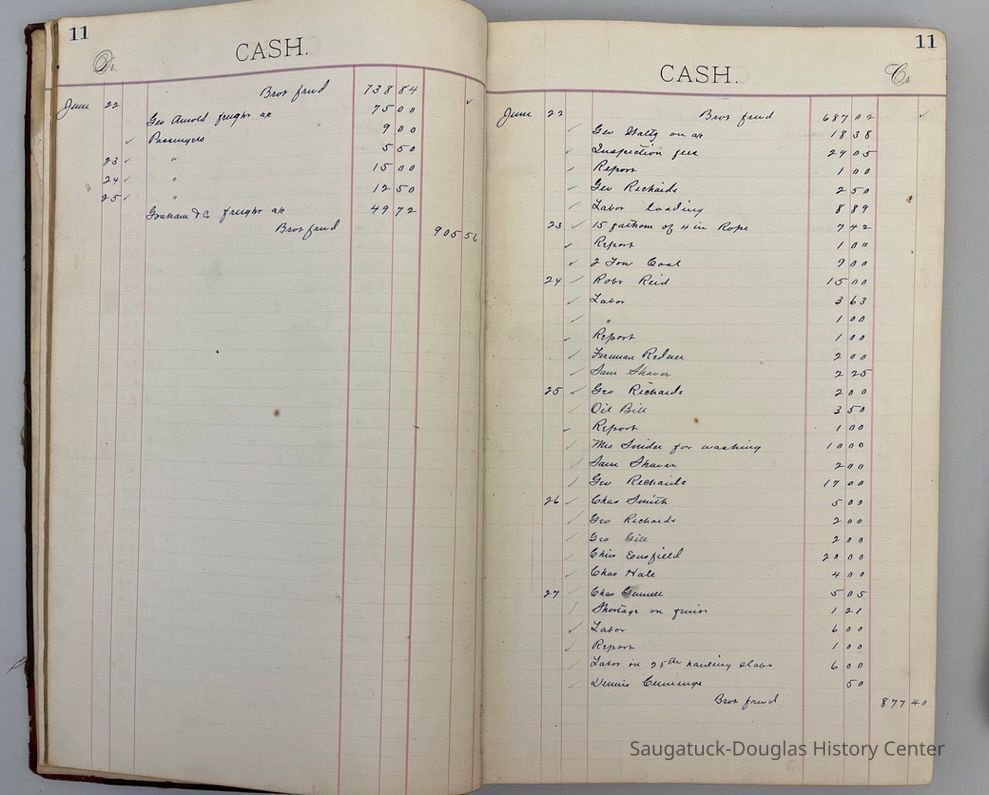 11
Dr.
CASH.
Brot frwd 738 84
June 22 Geo Arnold freight ac 75 00
✓ Passengers 9 00
23 ✓ " 5 50
24 ✓ " 15 00
25 ✓ " 12 50
Graham & Co freight ac 49 72
Brot frwd 905 56
11
CASH.
Cr.
June 22 Brot frwd 687 02
Geo on ac 18 38
Inspection fees 29 05
Report 1 00
Geo Richards 2 50
Labor loading 8 89
23 ✓ 15 fathom of 4 in Rope 7 42
Report 1 00
2 Ton Coal 9 00
24 ✓ Robt Reid 15 00
Labor 3 63
" 1 00
Report 1 00
Redner 2 00
Sam Shaver 2 25
25 ✓ Geo Richards 2 00
Oil Bill 3 50
Report 1 00
Mrs Snider for washing 10 00
Sam Shaver 2 00
Geo Richards 17 00
26 ✓ Chas Smith 5 00
Geo Richards 2 00
Geo Gill 2 00
20 00
Chas Hale 4 00
27 ✓ Chas 5 05
Shortage on fruit 1 21
Labor 6 00
Report 1 00
Labor in 25th hauling slabs 6 00
Dennis Cummings 50
Brot frwd 877 40
Saugatuck-Douglas History Center